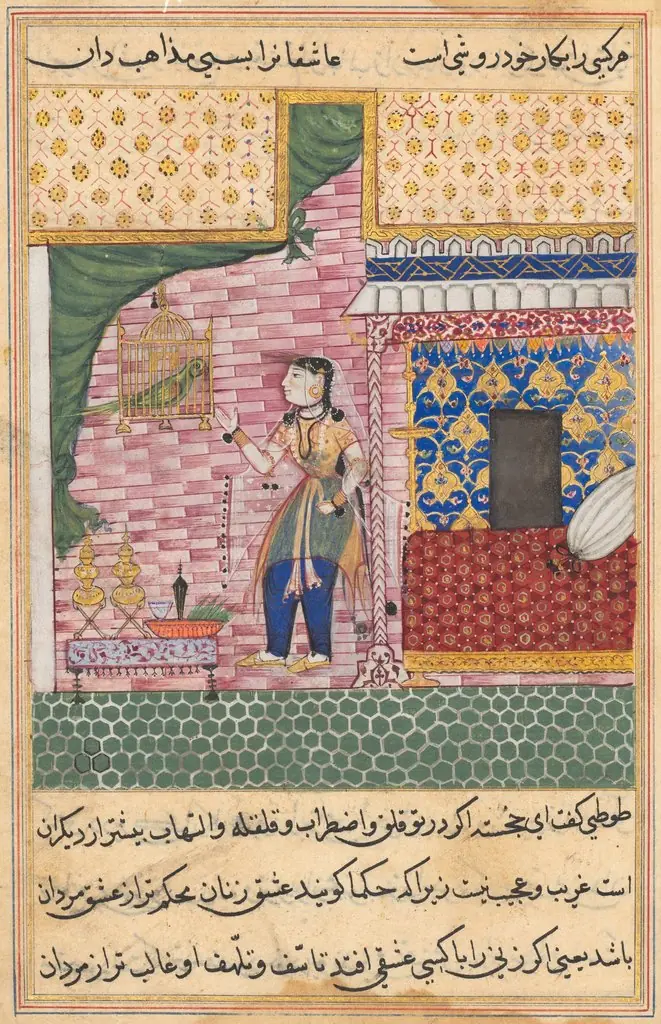 هرکسی را بکار خود روشی است عاشقانرا بسی مذاهب دان
طوطی کفت ای خجسته اکر در تو قلق و اضطراب و قلقله و التهاب بیشتر از دیکران
است غریب و عجیب نیست زیرا که حکما کویند عشق زنان محکم تر از عشق مردان
باشد یعنی اکر زنی را با کسی عشقی افتد تاسّف و تلهّف او غالب تر از مردان